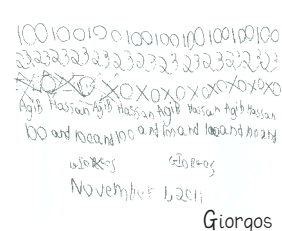 100100100100100100100100
232323232323232323232323
XOXOXOXOXOXOXOXOXO
Agib Hassan Agib Hassan Agib Hassan Agib Hassan
100 and 100 and 100 and 100 and 100 and 100 and
GIORGOS GIORGOS
November 1, 2011
Giorgos